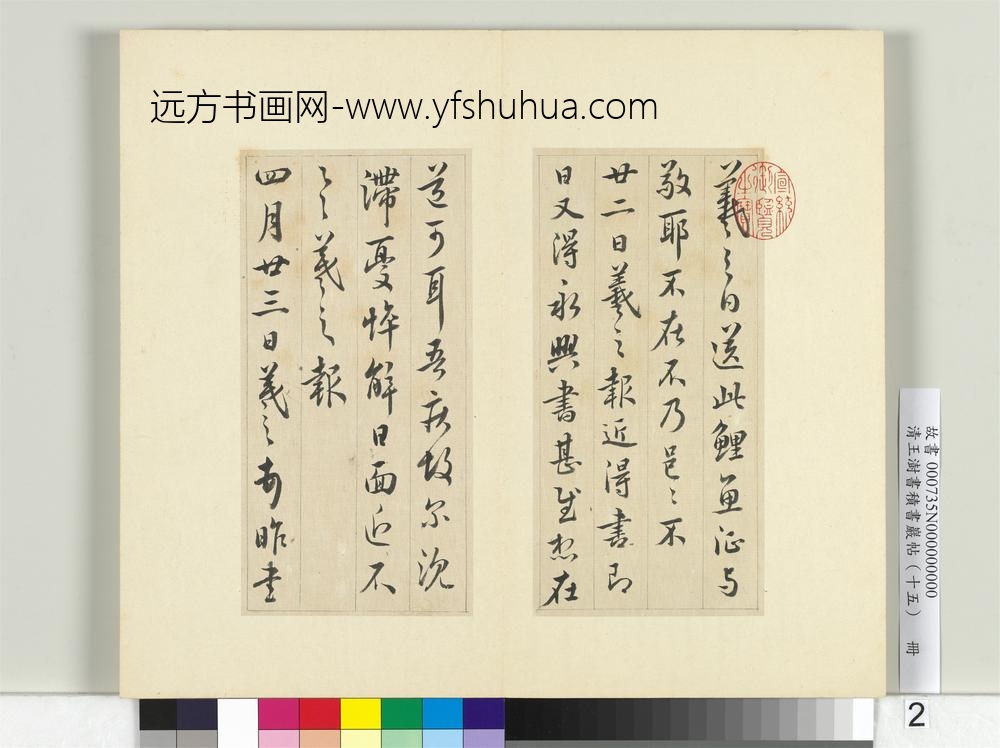 远方书画网-www.yfshuhua.com
羲之白送此鲤鱼征与
敬耶不在不乃邑〻不
廿二日羲之報近得書即
日又得永興書甚慰想在
道可耳吾疾故尔沉
滞憂悴解日面近不
〻羲之報
四月廿三日羲之頓昨書
宣統御覽之寶
故書 000735N000000000
清王澍書積書巖帖（十五） 冊
2